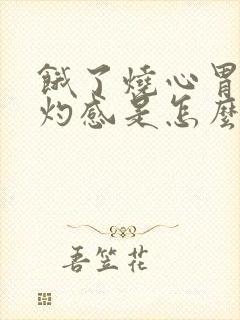 餓了燒心胃
灼感是怎麼
吾笠花